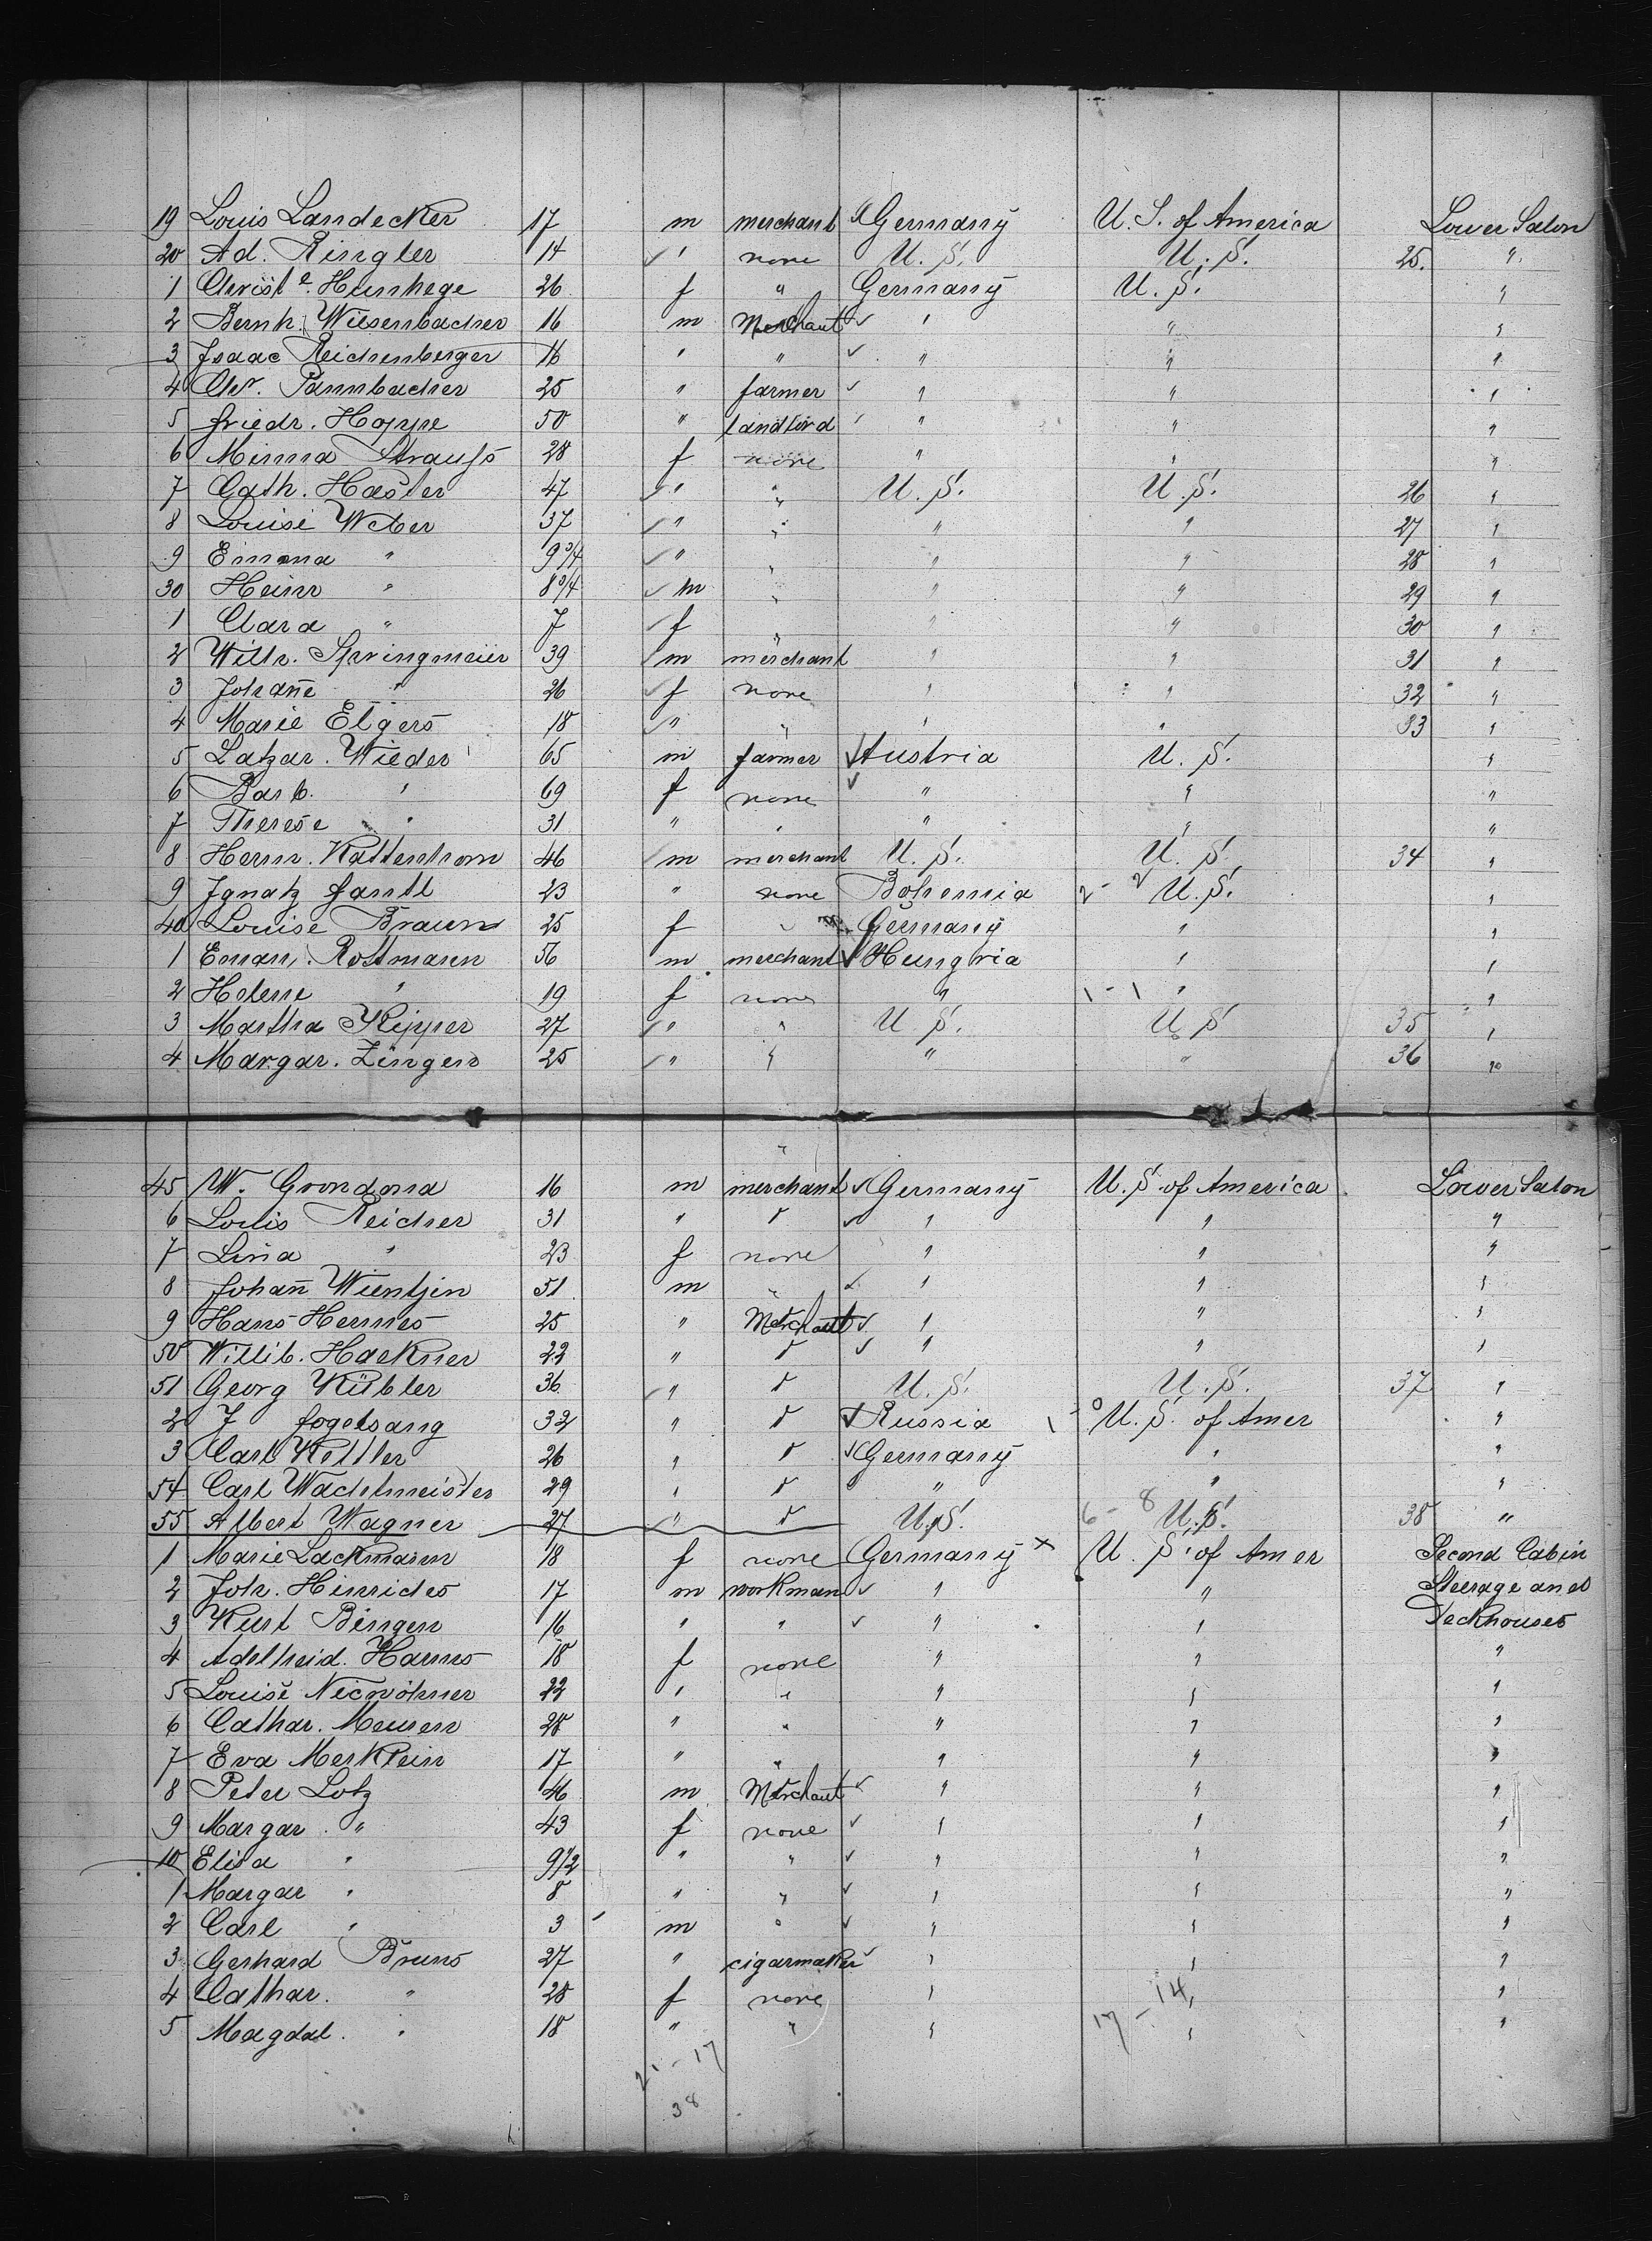 19 Louis Landecker 17 m merchant Germany U. S. of America Lower Salon
20 Ad. Ringler 14 " none U. S. U. S. 25. "
1 Christe. Hunhege 26 f " Germany U. S. "
2 Bernh. Wiesenbacher 16 m Merchant " " "
3 Isaac Reichenberger 16 " " " " "
4 Chr. Pannbacher 25 " farmer " " "
5 Friedr. Hoppe 50 " landlord " " "
6 Minna Strauss 28 f none " " "
7 Cath. Haster 47 " " U. S. U. S. 26 "
8 Louise Weber 37 " " " " 27 "
9 Emma " 9 3/4 " " " " 28 "
30 Heinr " 8 3/4 m " " " 29 "
1 Clara " 7 f " " " 30 "
2 Wilh. Springmeier 39 m merchant " " 31 "
3 Johanne " 26 f none " " 32 "
4 Marie Elgers 18 " " " " 33 "
5 Latzar. Wieder 65 m farmer Austria U. S. "
6 Barb. " 69 f none " " "
7 Therese " 31 " " " " "
8 Herm. Kattenhorn 46 m merchant U. S. U. S. 34 "
9 Ignatz Fantl 23 " none Bohemia 2 - 2 U. S. "
40 Louise Braun 25 f " Germany " "
1 Eman. Rottmann 56 m merchant Hungria " "
2 Helene " 19 f none " 1 - 1 " "
3 Martha Kipper 27 " " U. S. U S 35 "
4 Margar. Zingen 25 " " " " 36 "
"
45 W. Grondona 16 m merchant Germany U. S. of America Lower Salon
6 Louis Reicher 31 " " " " "
7 Lina " 23 f none " " "
8 Johann Wientjen 51 m " " " "
9 Hans Hermes 25 " Merchant " " "
50 Willib. Hackner 22 " " " " "
51 Georg Kübler 36 " " U. S. U. S. 37 "
2 J Fogelsang 32 " " Russia 1 - 0 U. S. of Amer "
3 Carl Kettler 26 " " Germany " "
54 Carl Wachtmeister 29 " " " " "
55 Albert Wagner 27 " " U. S. 6 - 8 U. S. 38 "
1 Marie Lackmann 18 f none Germany × U. S. of Amer Second Cabin
2 Joh. Hinrichs 17 m workman " " Steerage and
3 Kurt Bingen 16 " " " " Deckhouses
4 Adelheid. Harms 18 f none " " "
5 Louise Niewöhner 22 " " " " "
6 Cathar. Meusen 28 " " " " "
7 Eva Merklein 17 " " " " "
8 Peter Lotz 46 m Merchant " " "
9 Margar. " 43 f none " " "
10 Elisa " 9 1/2 " " " " "
1 Margar " 8 " " " " "
2 Carl " 3 m " " " "
3 Gerhard Bruns 27 " cigarmaker " " "
4 Cathar. " 28 f none " " "
5 Magdal. " 18 " " " 17 - 14 " "
21 - 17
38